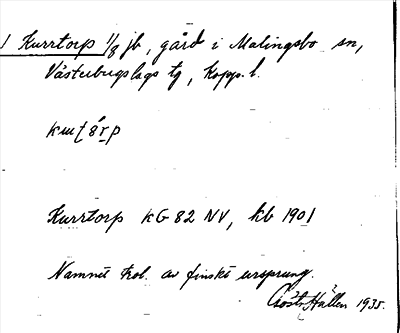 Kurrtorp 1/8 jb, gård i Malingsbo sn,
Västerbergslags tg, Kopp. l.
Kurrtorp KG 82 NV, kb 1901
Namnet trol. av finskt ursprung.
Gösta Hallén 1935.